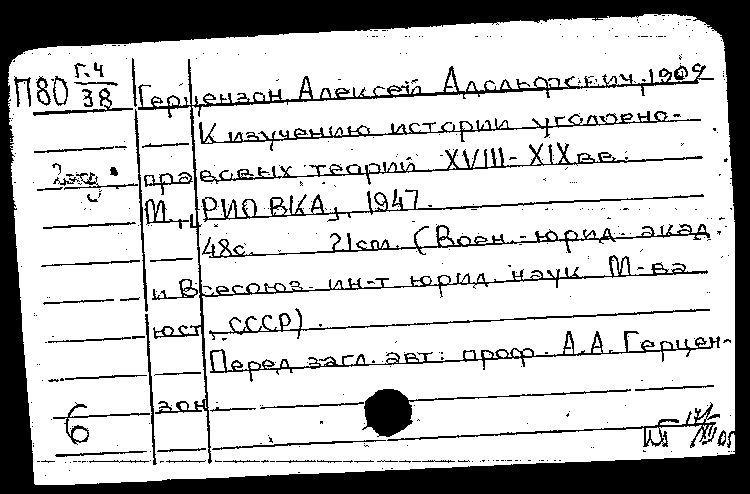 П80 Г.4/38
Герцензон, Алексей Адольфович, 1902
К изучению истории уголовно-
2 экз. правовых теорий XVIII-XIX вв.
М., РИО ВКА, 1947.
48с. 21см. (Воен.-юрид. акад.
и Всесоюз. ин-т юрид. наук М-ва
юст. СССР).
Перед загл. авт.: проф. А.А. Герцен-
зон.
6